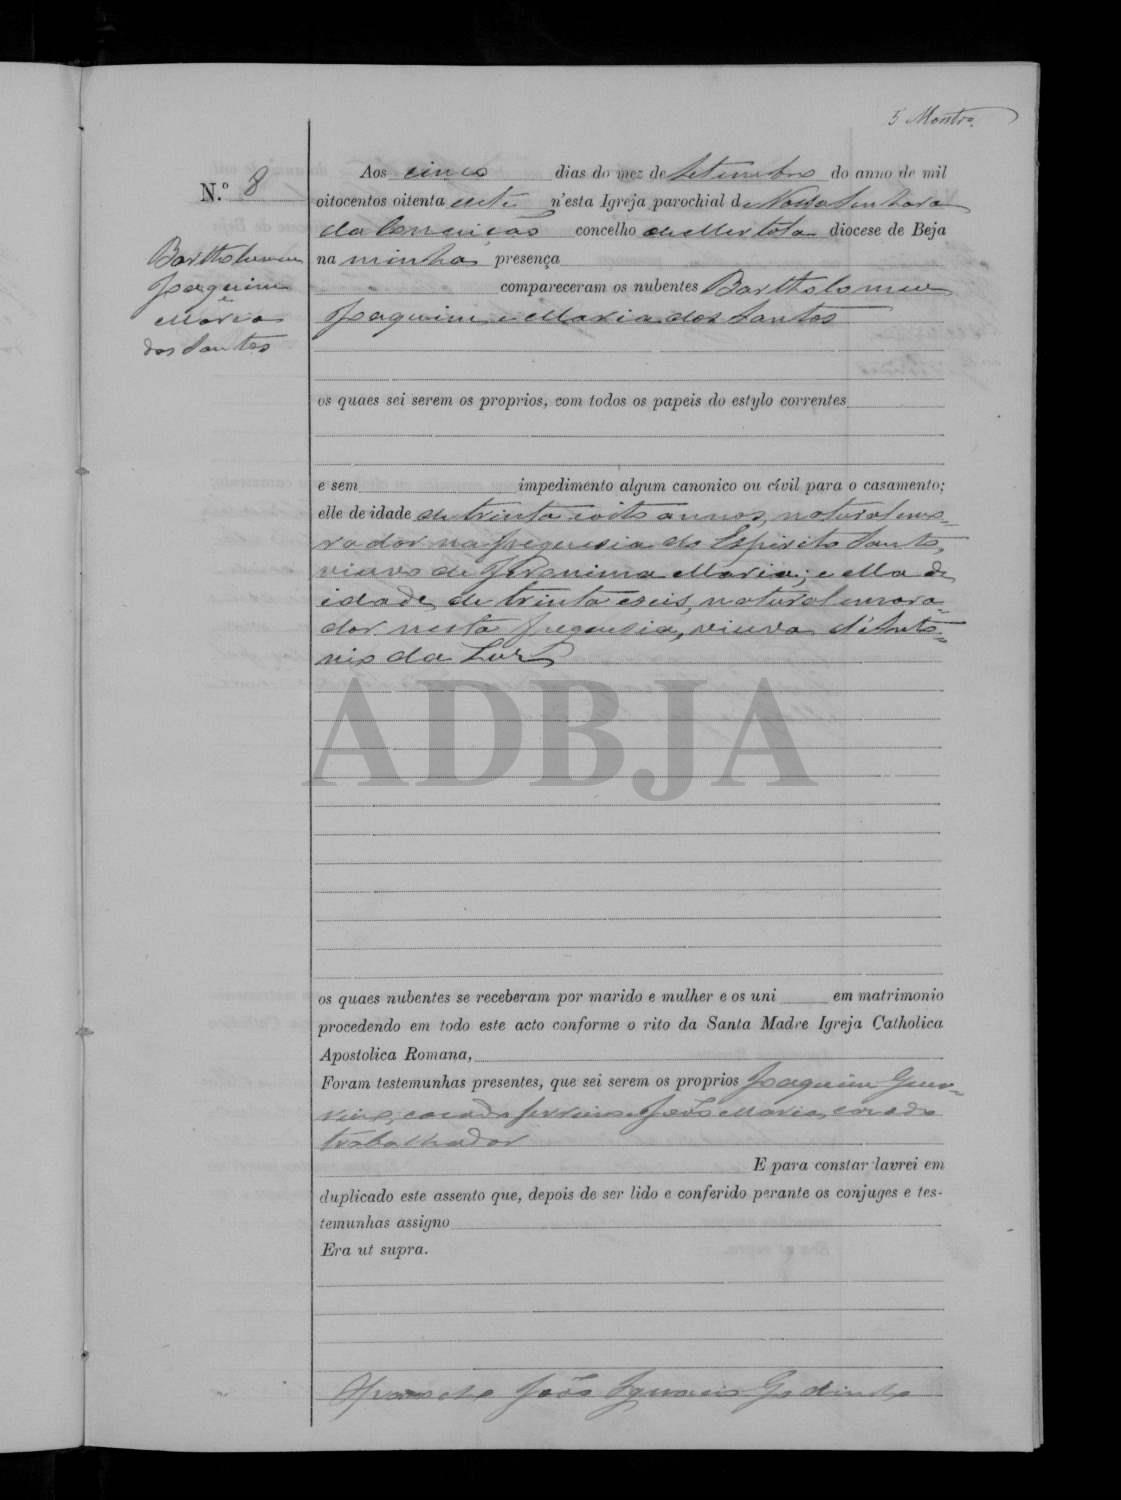 5
N.º 8
Bartholomeu
Joaquim
e
Maria
dos Santos
Aos cinco dias do mez de Setembro do anno de mil
oitocentos oitenta esete n'esta Igreja parochial de Nossa Senhora
da Conceição concelho de Mertola diocese de Beja
na minha presença
compareceram os nubentes Bartholomeu
Joaquim e Maria dos Santos
os quaes sei serem os proprios, com todos os papeis do estylo correntes
e sem impedimento algum canonico ou cívil para o casamento;
elle de idade de trinta eoito annos, natural emo=
rador na freguesia do Espirito Santo,
viuvo de Jeronima Maria; e ella de
idade de trinta eseis, natural emora=
dor nesta freguesia, viuva d'Anto=
nio da Luz
ADBJA
os quaes nubentes se receberam por marido e mulher e os uni em matrimonio
procedendo em todo este acto conforme o rito da Santa Madre Igreja Catholica
Apostolica Romana,
Foram testemunhas presentes, que sei serem os proprios Joaquim Guer=
reiro, casado ferreiro e João Maria, casado
trabalhador
E para constar lavrei em
duplicado este assento que, depois de ser lido e conferido perante os conjuges e tes-
temunhas assigno
Era ut supra.
O Parocho João Ignacio Godinho